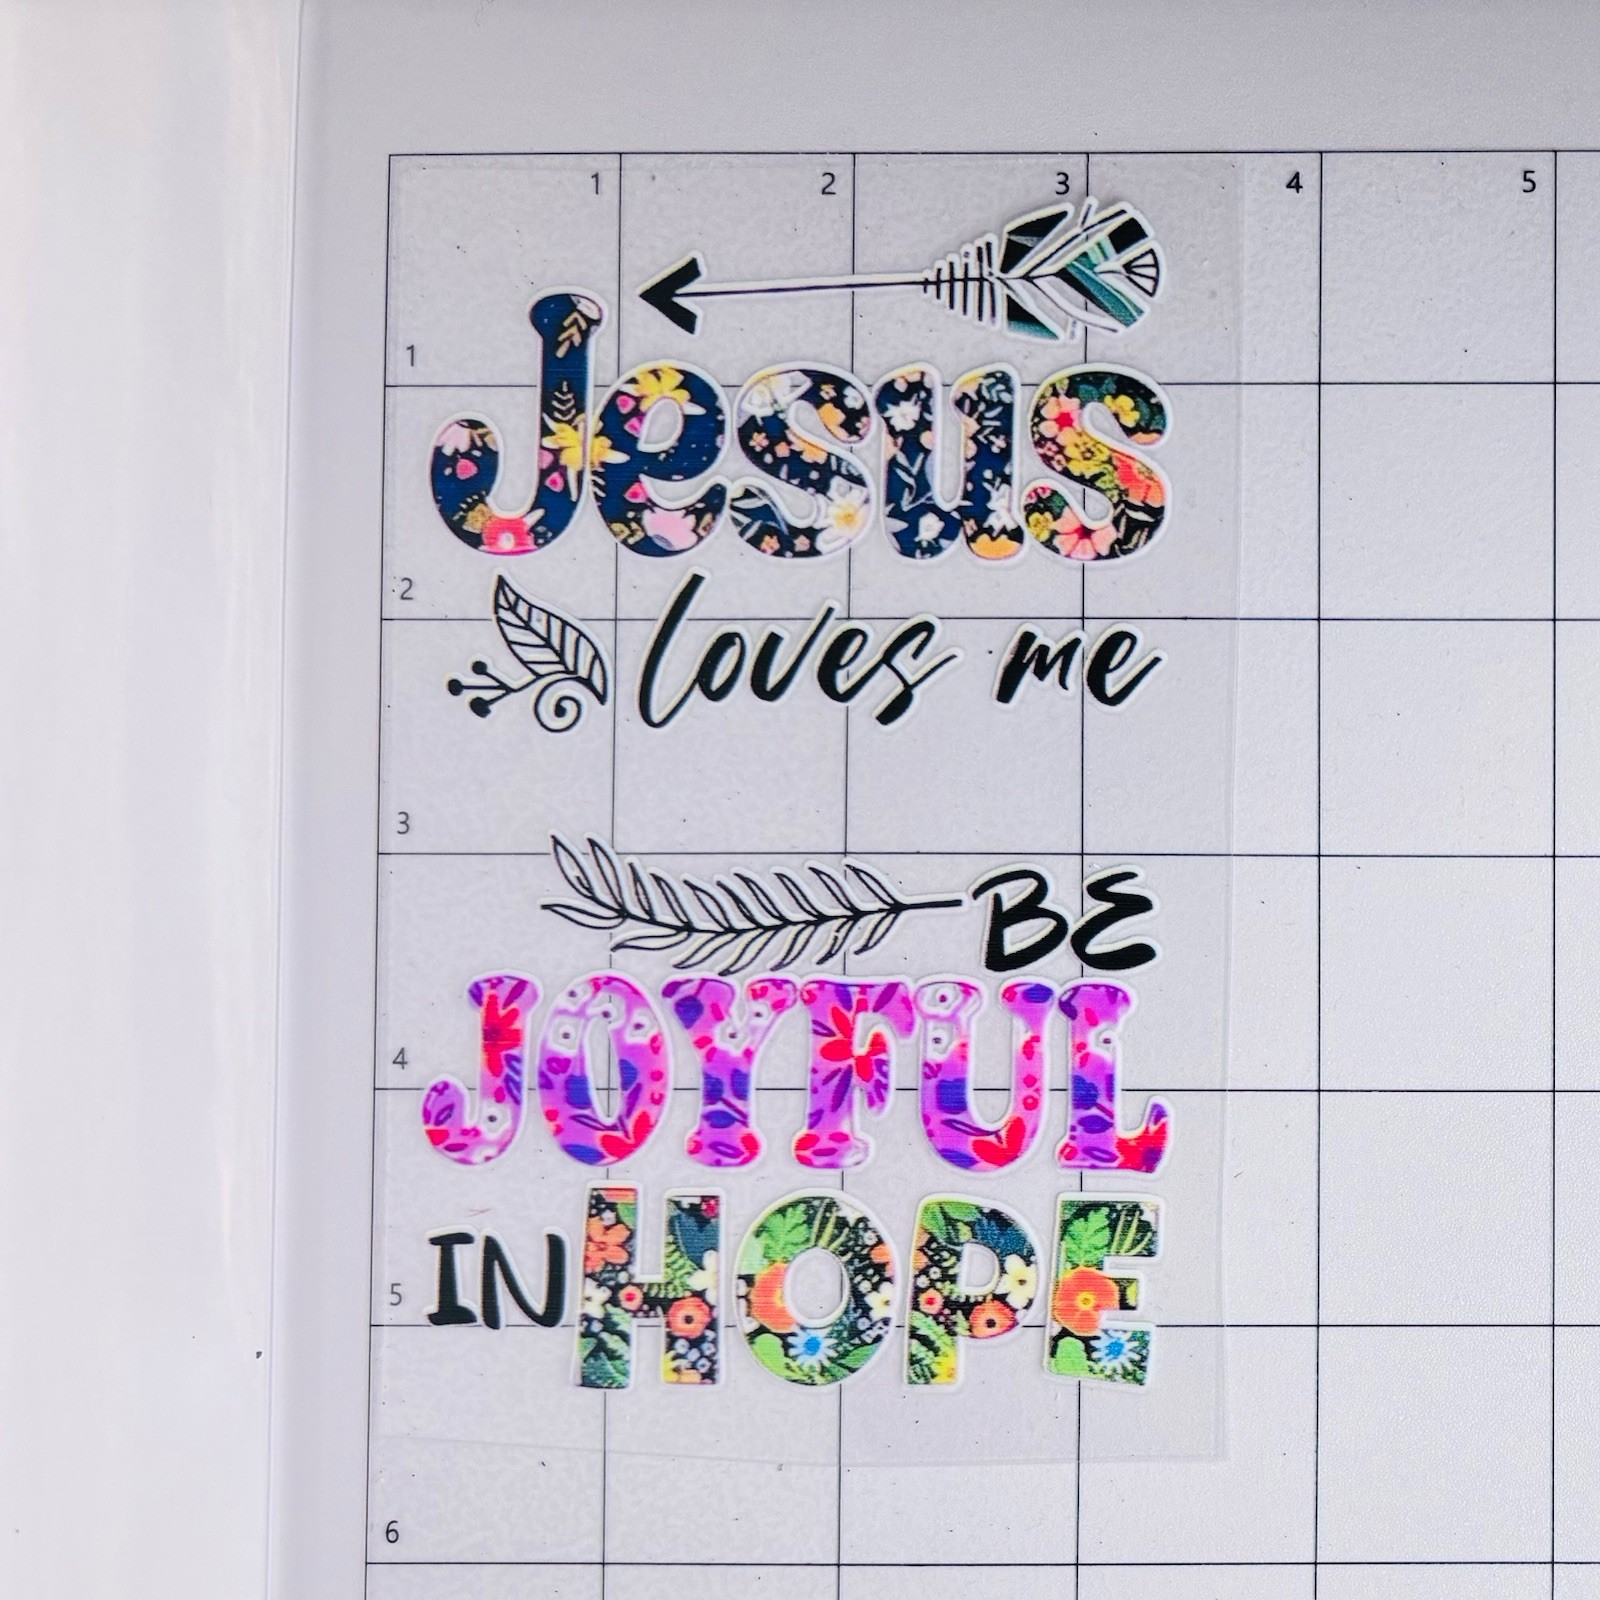 1 2 3 4 5
Jesus
1
2
loves me
3
BE
JOYFUL
4
IN HOPE
5
6